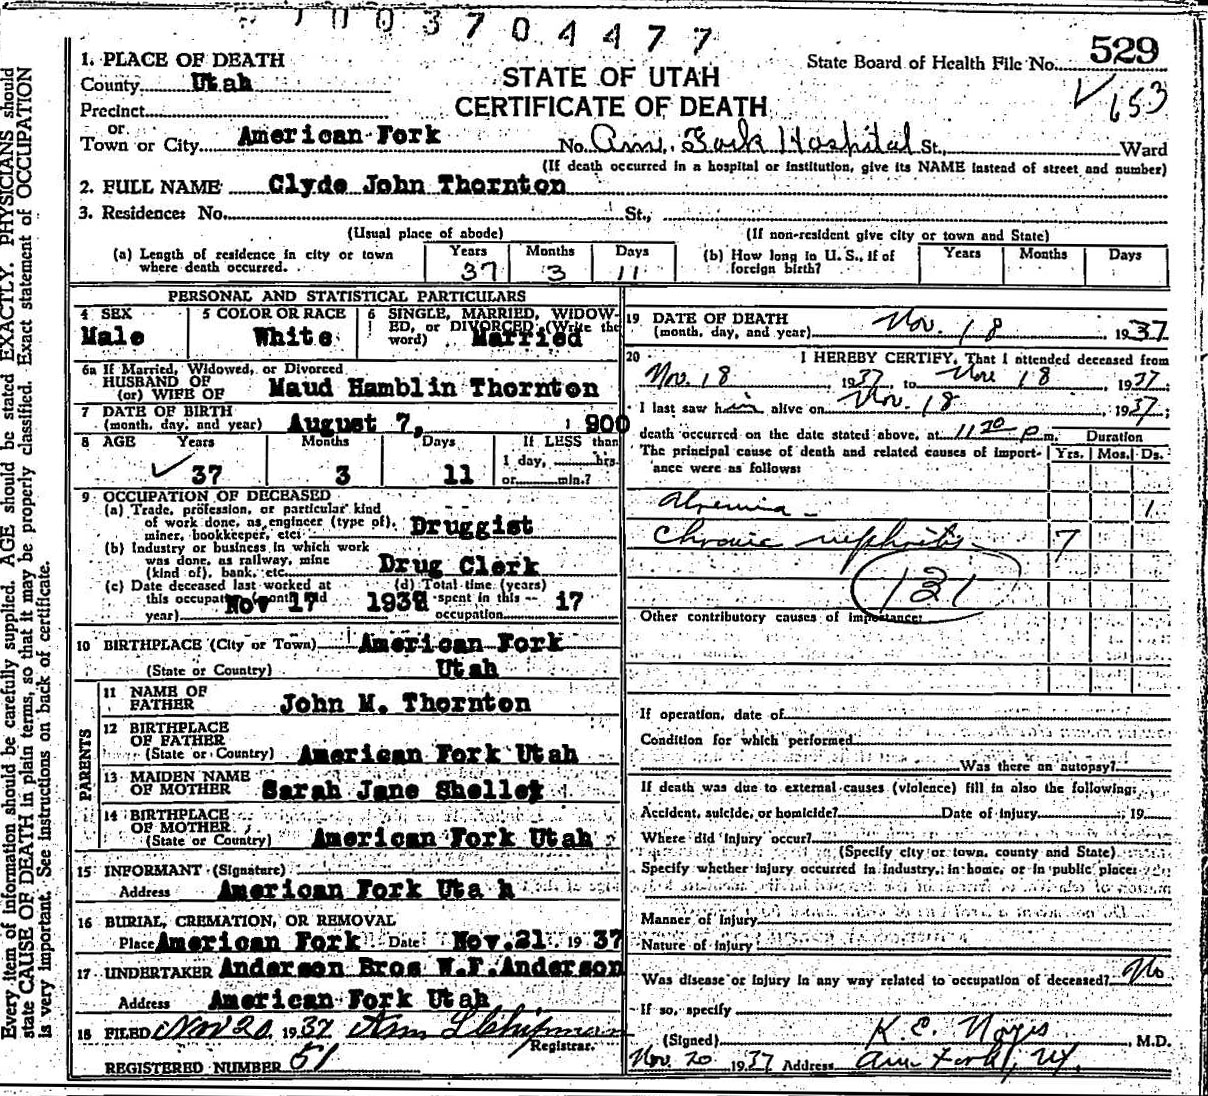 7003704477
529
State Board of Health File No.
153
1. PLACE OF DEATH
County Utah
STATE OF UTAH
CERTIFICATE OF DEATH
Precinct
or
Town or City American Fork No. Am. Fork Hospital St., Ward
(If death occurred in a hospital or institution, give its NAME instead of street and number)
2. FULL NAME Clyde John Thornton
3. Residence: No. St.,
(Usual place of abode) (If non-resident give city or town and State)
(a) Length of residence in city or town where death occurred. Years 37 Months 3 Days 11
(b) How long in U. S., if of foreign birth? Years Months Days
PERSONAL AND STATISTICAL PARTICULARS
4 SEX Male
5 COLOR OR RACE White
6 SINGLE, MARRIED, WIDOWED, or DIVORCED (Write the word) Married
6a If Married, Widowed, or Divorced
HUSBAND OF
(or) WIFE OF Maud Hamblin Thornton
7 DATE OF BIRTH
(month, day, and year) August 7, 1900
8 AGE Years 37 Months 3 Days 11 If LESS than
1 day, hrs.
or min.?
9 OCCUPATION OF DECEASED
(a) Trade, profession, or particular kind
of work done, as engineer (type of),
miner, bookkeeper, etc. Druggist
(b) Industry or business in which work
was done, as railway, mine
(kind of), bank, etc. Drug Clerk
(c) Date deceased last worked at
this occupation (month and
year) Nov 17 193
(d) Total time (years)
spent in this
occupation 17
10 BIRTHPLACE (City or Town) American Fork
(State or Country) Utah
PARENTS
11 NAME OF
FATHER John M. Thornton
12 BIRTHPLACE
OF FATHER
(State or Country) American Fork Utah
13 MAIDEN NAME
OF MOTHER Sarah Jane Shelley
14 BIRTHPLACE
OF MOTHER
(State or Country) American Fork Utah
15 INFORMANT (Signature)
Address American Fork Uta h
16 BURIAL, CREMATION, OR REMOVAL
Place American Fork Date Nov.21. 1937
17 UNDERTAKER Anderson Bros W.F.Anderson
Address American Fork Utah
18 FILED Nov 20, 1937 Chipman
Registrar.
REGISTERED NUMBER 51
19 DATE OF DEATH
(month, day, and year) Nov. 18 1937
20 I HEREBY CERTIFY, That I attended deceased from
Nov. 18, 1937 to Nov 18, 1937;
I last saw him alive on Nov. 18, 1937;
death occurred on the date stated above, at 11 20 P m.
Duration
Yrs. Mos. Ds.
The principal cause of death and related causes of importance were as follows:
1
Chronic nephritis 7
131
Other contributory causes of importance:
If operation, date of
Condition for which performed
Was there an autopsy?
If death was due to external causes (violence) fill in also the following:
Accident, suicide, or homicide? Date of injury 19
Where did injury occur?
(Specify city or town, county and State)
Specify whether injury occurred in industry, in home, or in public place:
Manner of injury
Nature of injury
Was disease or injury in any way related to occupation of deceased? No
If so, specify
(Signed) K. E. Noyes, M.D.
Nov. 20 1937 Address Am Fork, Ut.
Every item of information should be carefully supplied. AGE should be stated EXACTLY. PHYSICIANS should
state CAUSE OF DEATH in plain terms, so that it may be properly classified. Exact statement of OCCUPATION
is very important. See instructions on back of certificate.